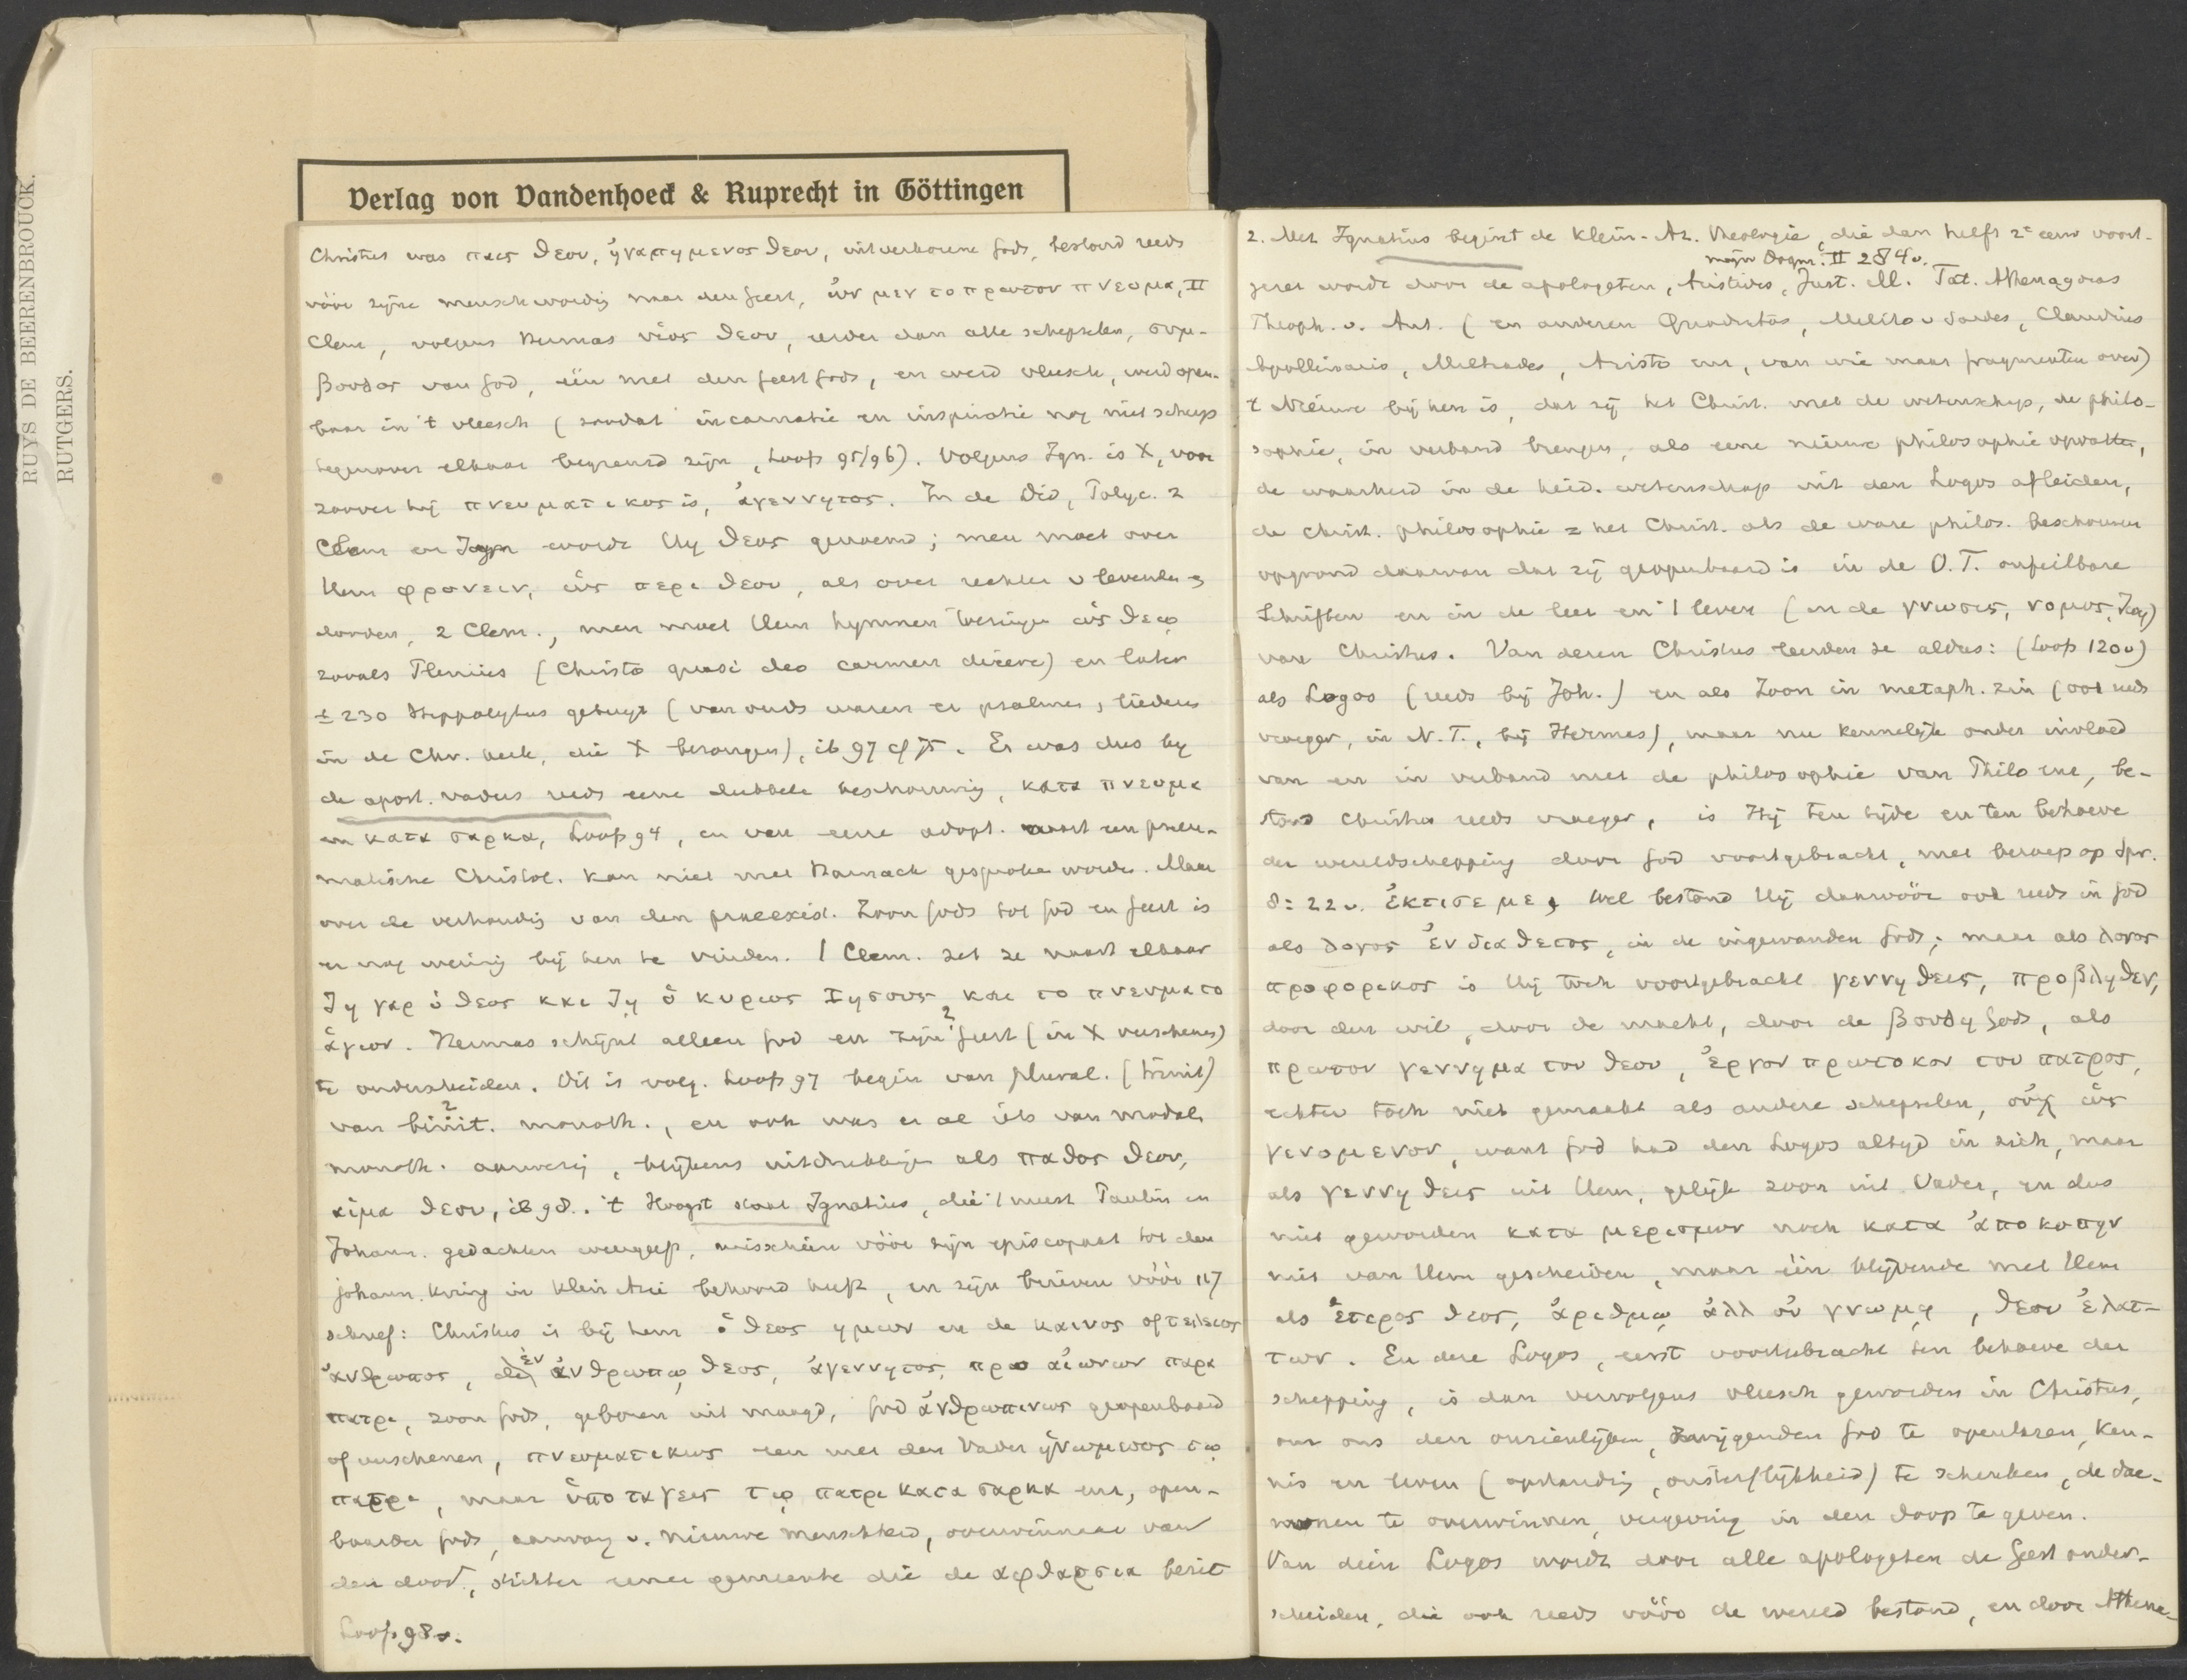 RUYS DE BEERENBROUCK.
RUTGERS.
Verlag von Vandenhoeck & Ruprecht in Göttingen
Christus was παις θεου, ἠγαπημενος θεου, uitverkorene Gods, bestond reeds
vóór zijne menschwording naar den geest, ὠν μεν το πρωτον πνευμα, II
Clem, volgens Hermas υἱος θεου, eerder dan alle schepselen, συμ-
βουλος van God, één met den geest Gods, en werd vleesch, werd open-
baar in 't vleesch (zoodat incarnatie en inspiratie nog niet scherp
tegenover elkaar begrensd zijn, Loofs 95/96). Volgens Ign. is X, voor
zoover hij πνευματικος is, ἀγεννητος. In de Did, Polyc. 2
Clem en Ign wordt Hij θεος genoemd; men moet over
Hem φρονειν, ὡς περι θεου, als over rechter v levenden en
dooden, 2 Clem., men moet Hem hymnen toezingen ὡς θεῳ
zooals Plinius (Christo quasi deo carmen dicere) en later
± 230 Hippolytus getuigt (van ouds waren er psalmen, liederen
in de Chr. kerk, die X bezongen), ib 97 cf 75. Er was dus bij
de apost. vaders reeds eene dubbele beschouwing, κατα πνευμα
en κατα σαρκα, Loofs 94, en van eene adopt. naast een pneu-
matische Christol. kan niet met Harnack gesproken worden. Maar
over de verhouding van den praeexist. Zoon Gods tot God en Geest is
er nog weinig bij hen te vinden. 1 Clem. zet ze naast elkaar
ζῃ γαρ ὁ θεος και ζῃ ὁ κυριος Ιησους και το πνευμα το
ἁγιον. Hermas schijnt alleen God en zijn Geest (in X verschenen)
te onderscheiden. Dit is volg. Loofs 97 begin van plural. (trinit)
van binit. monoth., en ook was er al iets van modal.
monoth. aanwezig, blijkens uitdrukkingen als παθος θεου,
αἱμα θεου, ib 98. 't Hoogst staat Ignatius, die 't meest Paulin en
Johann. gedachten weergeeft, misschien vóór zijn episcopaat tot den
johann. kring in Klein Azië behoord heeft, en zijn brieven vóór 117
schreef: Christus is bij hem ὁ θεος ημων en de καινος of τελειος
ἀνθρωπος, ἐν ἀνθρωπῳ θεος, ἀγεννητος, προ αἰωνων παρα
πατρι, zoon Gods, geboren uit maagd, God ἀνθρωπινως geopenbaard
of verschenen, πνευματικως een met den Vader ἡνωμενος τῳ
πατρι, maar ὑποταγεις τῳ πατρι κατα σαρκα enz, open-
baarder Gods, aanvang v. nieuwe menschheid, overwinnaar van
den dood, stichter eener gemeente die de αφθαρσια bezit
Loofs 98v.
2. Met Ignatius begint de Klein-Az. Theologie, die dan helft 2e eeuw voort-
mijn Dogm. II 284v.
gezet wordt door de apologeten, Aristides, Just. M. Tat. Athenagoras
Theoph. v. Ant. (en anderen Quadratus, Melito v Sardes, Claudius
Apollinaris, Miltiades, Aristo enz, van wie maar fragmenten over)
't Nieuwe bij hen is, dat zij het Christ. met de wetenschap, de philo-
sophie, in verband brengen, als eene nieuwe philosophie opvatten,
de waarheid in de heid. wetenschap uit den Logos afleiden,
de christ. philosophie = het Christ. als de ware philos. beschouwen
opgrond daarvan dat zij geopenbaard is in de O.T. onfeilbare
Schriften en in de leer en 't leven (en de γνωσις, νομος,
van Christus. Van dezen Christus leerden ze aldus: (Loofs 120v)
als Logos (reeds bij Joh.) en als Zoon in metaph. zin (ook reeds
vroeger, in N.T., bij Hermas), maar nu kennelijk onder invloed
van en in verband met de philosophie van Philo enz, be-
stond Christus reeds vroeger, is Hij ten tijde en ten behoeve
der wereldschepping door God voortgebracht, met beroep op Spr.
8:22v. ἐκτισε με, Wel bestond Hij daarvóór ook reeds in God
als λογος ἐνδιαθετος, in de ingewanden Gods; maar als λογος
προφορικος is Hij toch voortgebracht γεννηθεις, προβληθεν,
door den wil, door de macht, door de βουλη Gods, als
πρωτον γεννημα του θεου, ἐργον πρωτοκον του πατρος,
echter toch niet gemaakt als andere schepselen, οὐχ ὡς
γενομενον, want God had den Logos altijd in zich, maar
als γεννηθεις uit Hem, gelijk zoon uit Vader, en dus
niet geworden κατα μερισμον noch κατα ἀποκοπην
niet van Hem gescheiden, maar één blijvende met Hem
als ἑτερος θεος, ἀριθμῳ ἀλλ οὐ γνωμῃ, θεου ἐλατ-
των. En deze Logos, eerst voortgebracht ten behoeve der
schepping, is dan vervolgens vleesch geworden in Christus,
om ons den onzienlijken, zwijgenden God te openbaren, ken-
nis en leven (opstanding, onsterflijkheid) te schenken, de dae-
monen te overwinnen, vergeving in den doop te geven.
Van dezen Logos wordt door alle apologeten de Geest onder-
scheiden, die ook reeds vóór de wereld bestond, en door Athena-